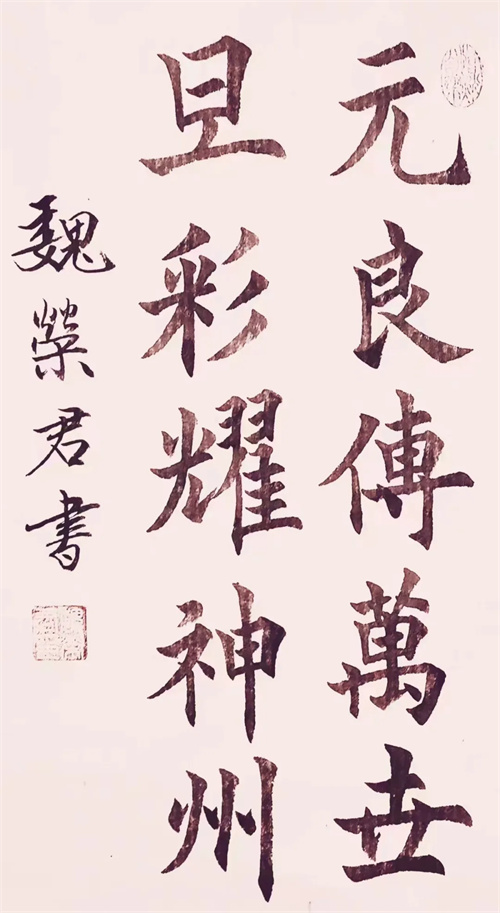 元良傳萬世
旦彩耀神州
魏榮君書